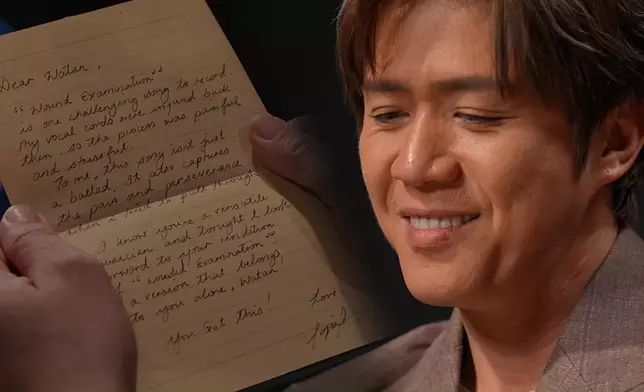 Dear Watan,
"Wound Examination"
is one challenging song to record.
My vocal cords were injured back
then, so the process was painful
and stressful.
To me, this song isn't just
a ballad. It also captures
the pain and perseverance
when I tried to pull through
I know you're a versatile
musician and tonight I look
forward to your rendition
of "Wound Examination"
a version that belongs
to you alone, Watan!
You Got this!
Love,